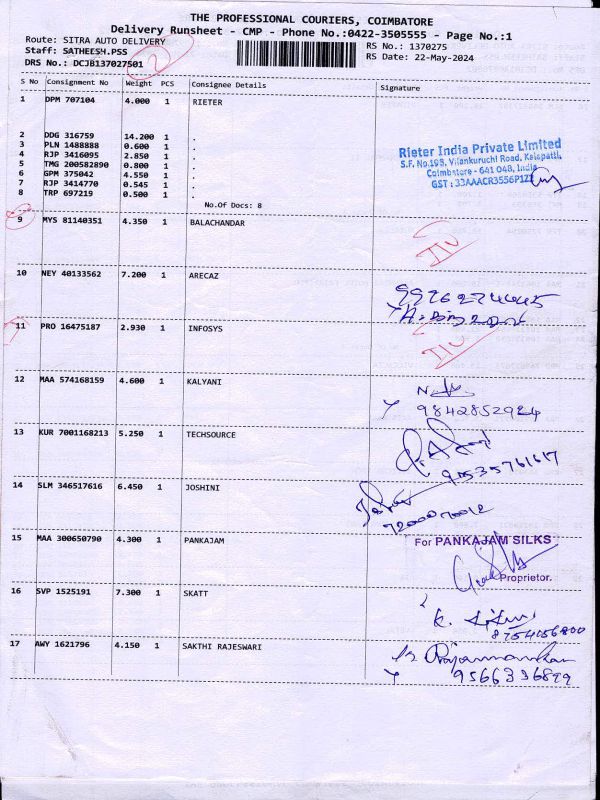 THE PROFESSIONAL COURIERS, COIMBATORE
Delivery Runsheet - CMP - Phone No.:0422-3505555 - Page No.:1
Route: SITRA AUTO DELIVERY
Staff: SATHEESH.PSS
DRS No.: DCJB137027501
2
RS No.: 1370275
RS Date: 22-May-2024
S No Consignment No Weight PCS Consignee Details Signature
1 DPM 707104 4.000 1 RIETER
2 DDG 316759 14.200 1 .
3 PLN 1488888 0.600 1 .
4 RJP 3416095 2.850 1 .
5 TMG 200582890 0.800 1 .
6 GPM 375042 4.550 1 .
7 RJP 3414770 0.545 1 .
8 TRP 697219 0.500 1 .
No.Of Docs: 8
Rieter India Private Limited
S.F. No.195, Vilankuruchi Road, Kalapatti,
Coimbatore - 641 048, India
GST : 33AAACR3556P1Z1
9 MYS 81140351 4.350 1 BALACHANDAR
10 NEY 40133562 7.200 1 ARECAZ
11 PRO 16475187 2.930 1 INFOSYS
12 MAA 574168159 4.600 1 KALYANI
9842852924
13 KUR 7001168213 5.250 1 TECHSOURCE
14 SLM 346517616 6.450 1 JOSHINI
15 MAA 300650790 4.300 1 PANKAJAM
For PANKAJAM SILKS
Proprietor.
16 SVP 1525191 7.300 1 SKATT
17 AWY 1621796 4.150 1 SAKTHI RAJESWARI
9566336899